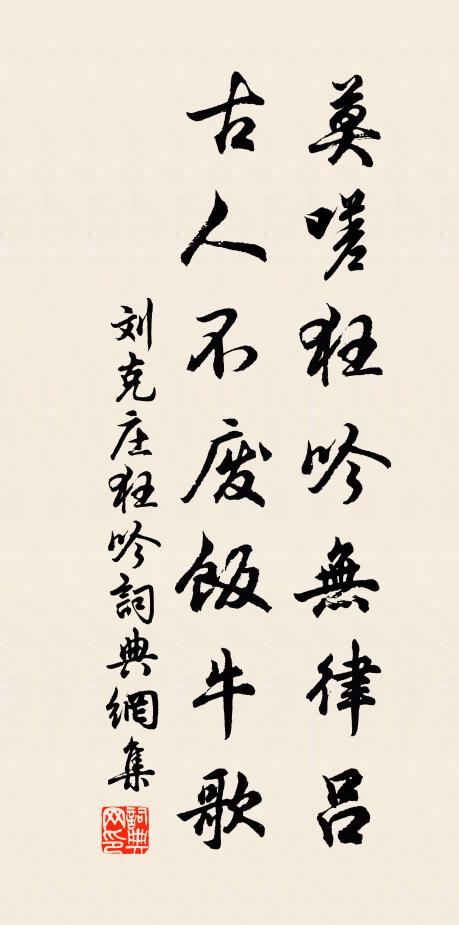 莫嗟狂吟無律呂
古人不废飯牛歌
刘克庄狂吟詞典網集
詞典
网印